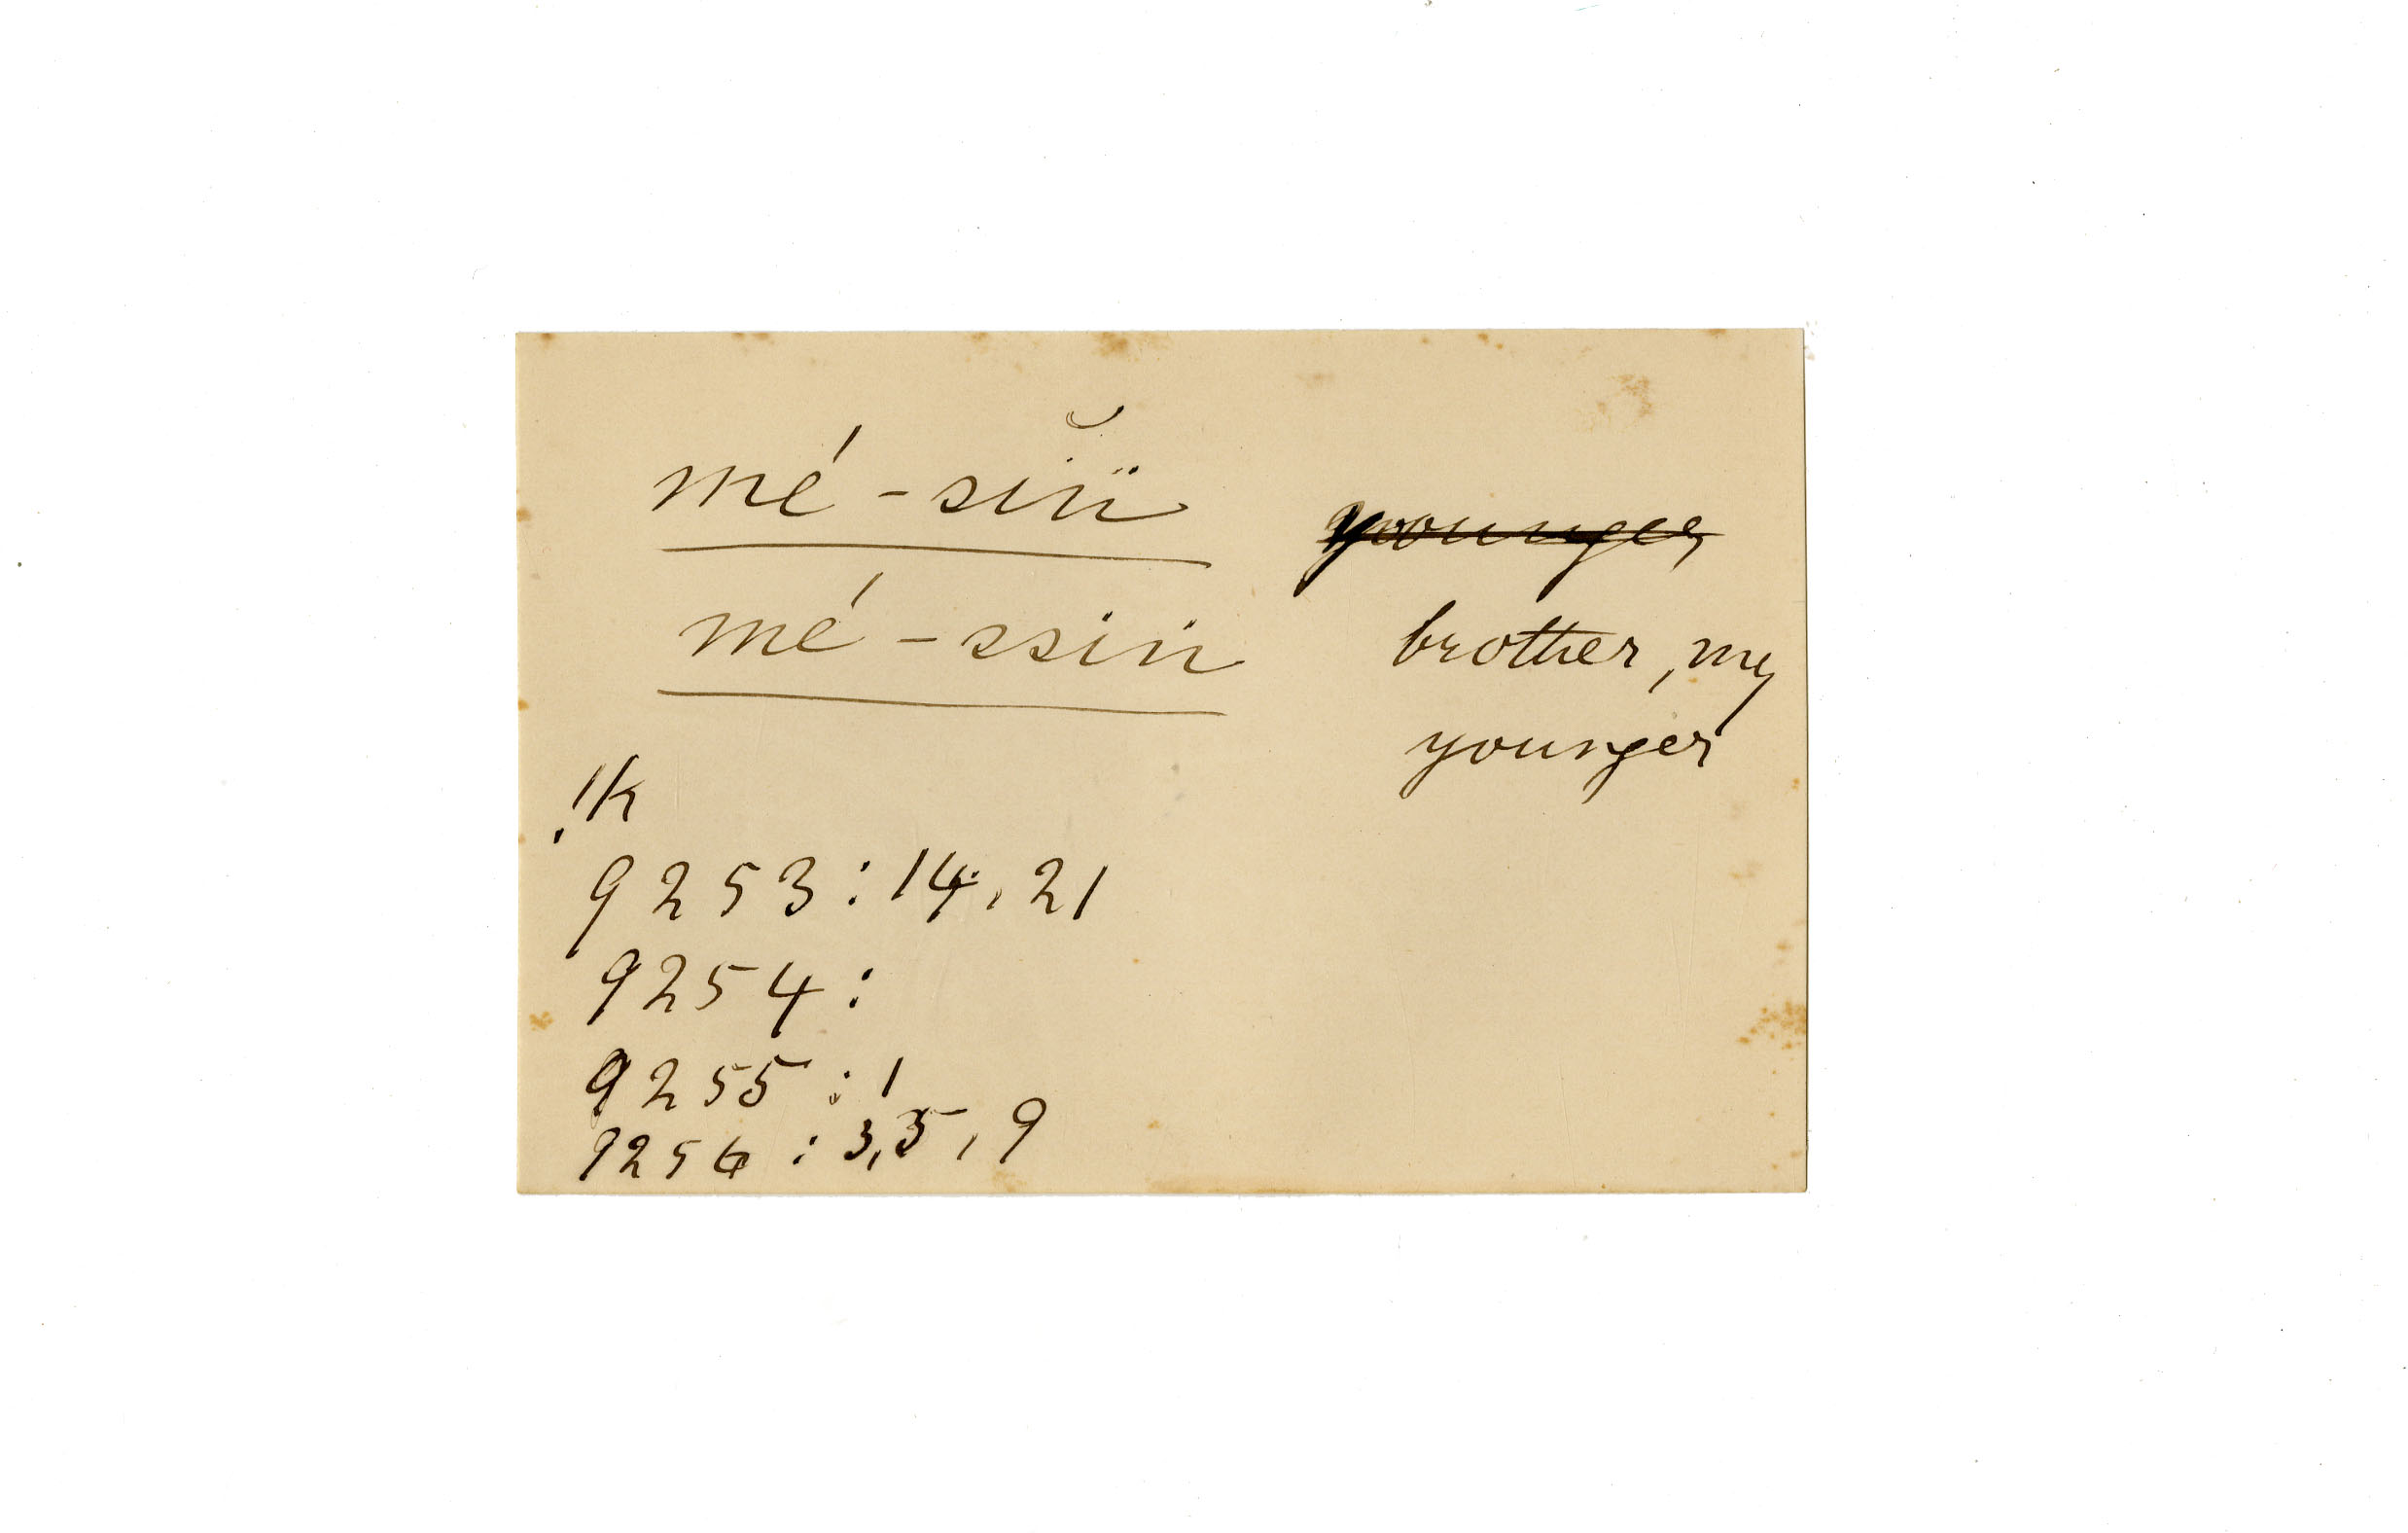 mé-sĭü
mé-ssiü
younger
brother, my
younger
!k
9253:14,21
9254:
9255:1
9256:3,5,9